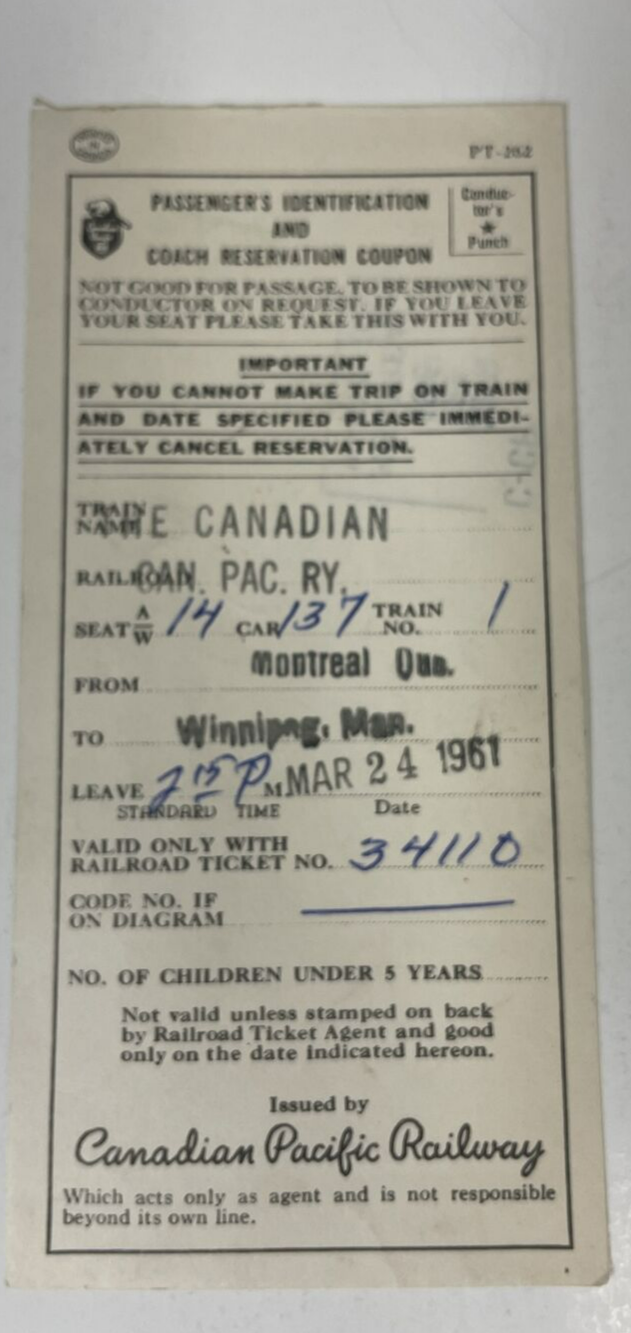 PT-202
PASSENGER'S IDENTIFICATION
AND
COACH RESERVATION COUPON
Conduc-
tor's
★
Punch
NOT GOOD FOR PASSAGE. TO BE SHOWN TO
CONDUCTOR ON REQUEST. IF YOU LEAVE
YOUR SEAT PLEASE TAKE THIS WITH YOU.
IMPORTANT
IF YOU CANNOT MAKE TRIP ON TRAIN
AND DATE SPECIFIED PLEASE IMMEDI-
ATELY CANCEL RESERVATION.
TRAIN
NAME THE CANADIAN
RAILROAD CAN. PAC. RY.
SEAT A/W 14 CAR 137 TRAIN NO. 1
FROM Montreal Que.
TO Winnipeg, Man.
LEAVE 2 15 P M MAR 24 1961
STANDARD TIME Date
VALID ONLY WITH
RAILROAD TICKET NO. 34110
CODE NO. IF
ON DIAGRAM
NO. OF CHILDREN UNDER 5 YEARS
Not valid unless stamped on back
by Railroad Ticket Agent and good
only on the date indicated hereon.
Issued by
Canadian Pacific Railway
Which acts only as agent and is not responsible
beyond its own line.